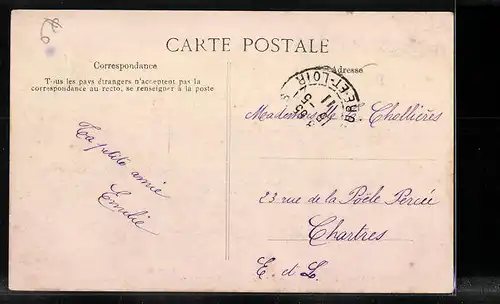 CARTE POSTALE
Correspondance
Adresse
Tous les pays étrangers n'acceptent pas la
correspondance au recto, se renseigner à la poste
EURE-ET-LOIR
Ta petite amie
Emilie
Mademoiselle S. Chellières
23 rue de la Poële Percée
Chartres
E. et L.